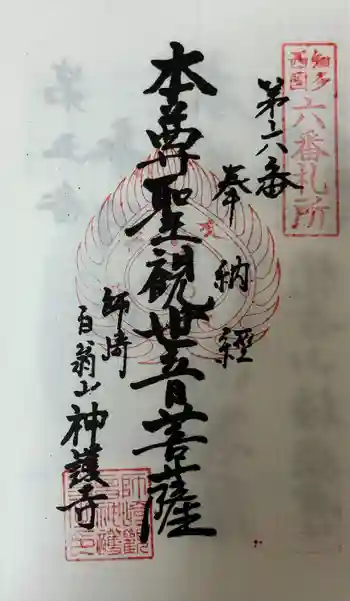 知多
西国
六番札所
第六番
奉納経
本尊聖観世音菩薩
師崎
白翁山
神護寺